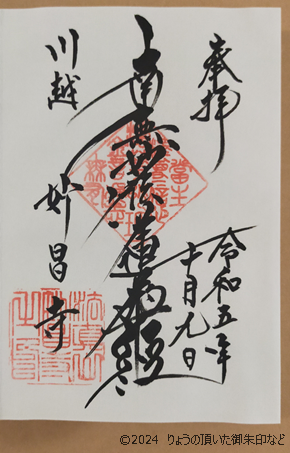 奉拝
令和五年
十月九日
南無妙法蓮華経
川越
妙昌寺
法眞山
©2024 りょうの頂いた御朱印など